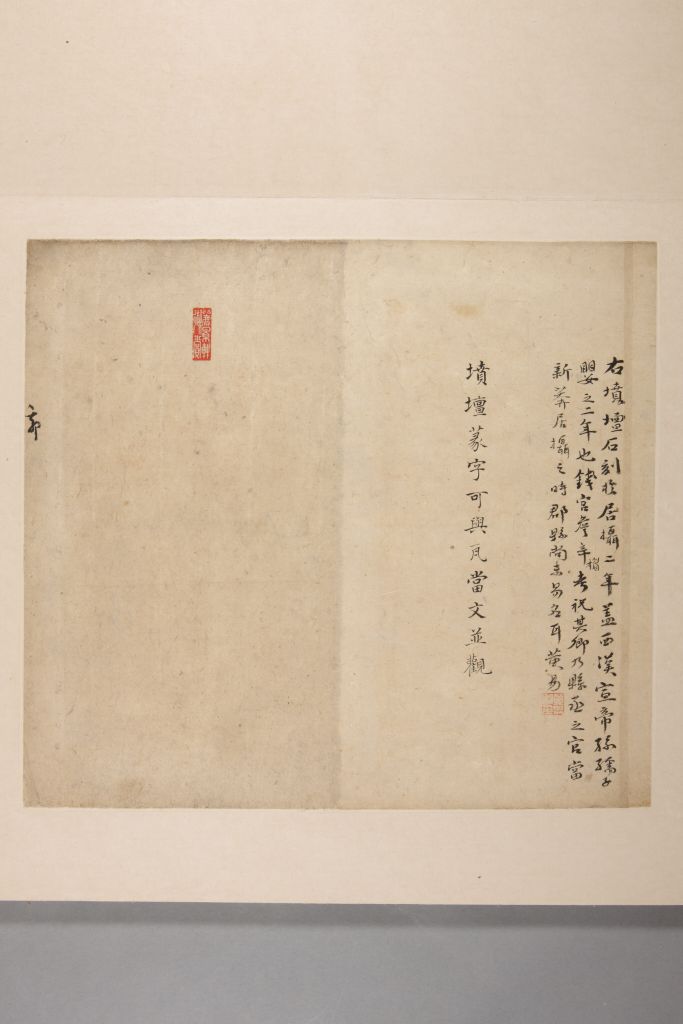 右墳壇石刻於居攝二年蓋西漢宣帝孫孺子
嬰之二年也錢宮詹年考祝其卿乃縣丞之官當
新莽居攝之時郡縣尚未易名耳黃易
墳壇篆字可與瓦當文並觀